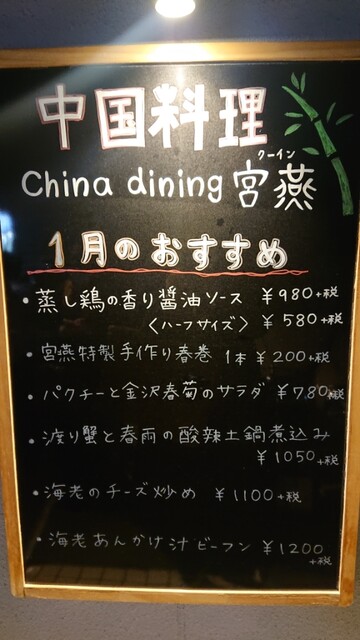 中国料理
クーイン
China dining 宮燕
1月のおすすめ
・蒸し鶏の香り醤油ソース ¥980+税
〈ハーフサイズ〉 ¥580+税
・宮燕特製手作り春巻 1本 ¥200+税
・パクチーと金沢春菊のサラダ ¥780+税
・渡り蟹と春雨の酸辣土鍋煮込み
¥1050+税
・海老のチーズ炒め ¥1100+税
・海老あんかけ汁ビーフン ¥1200
+税